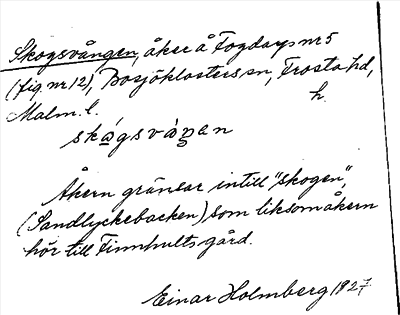 Skogsvången, åker å Fogdarp nr 5
(fig. nr 12), Bosjöklosters sn, Frosta hd,
Malm. l. h.
skógsvàŋen
Åkern gränsar intill "skogen",
(Sandlyckebacken) som liksom åkern
hör till Finnhults gård.
Einar Holmberg 1927.